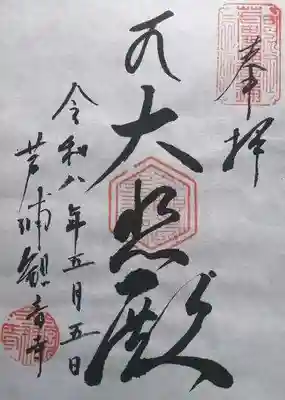 奉拝
大悲殿
令和八年五月五日
芦浦観音寺